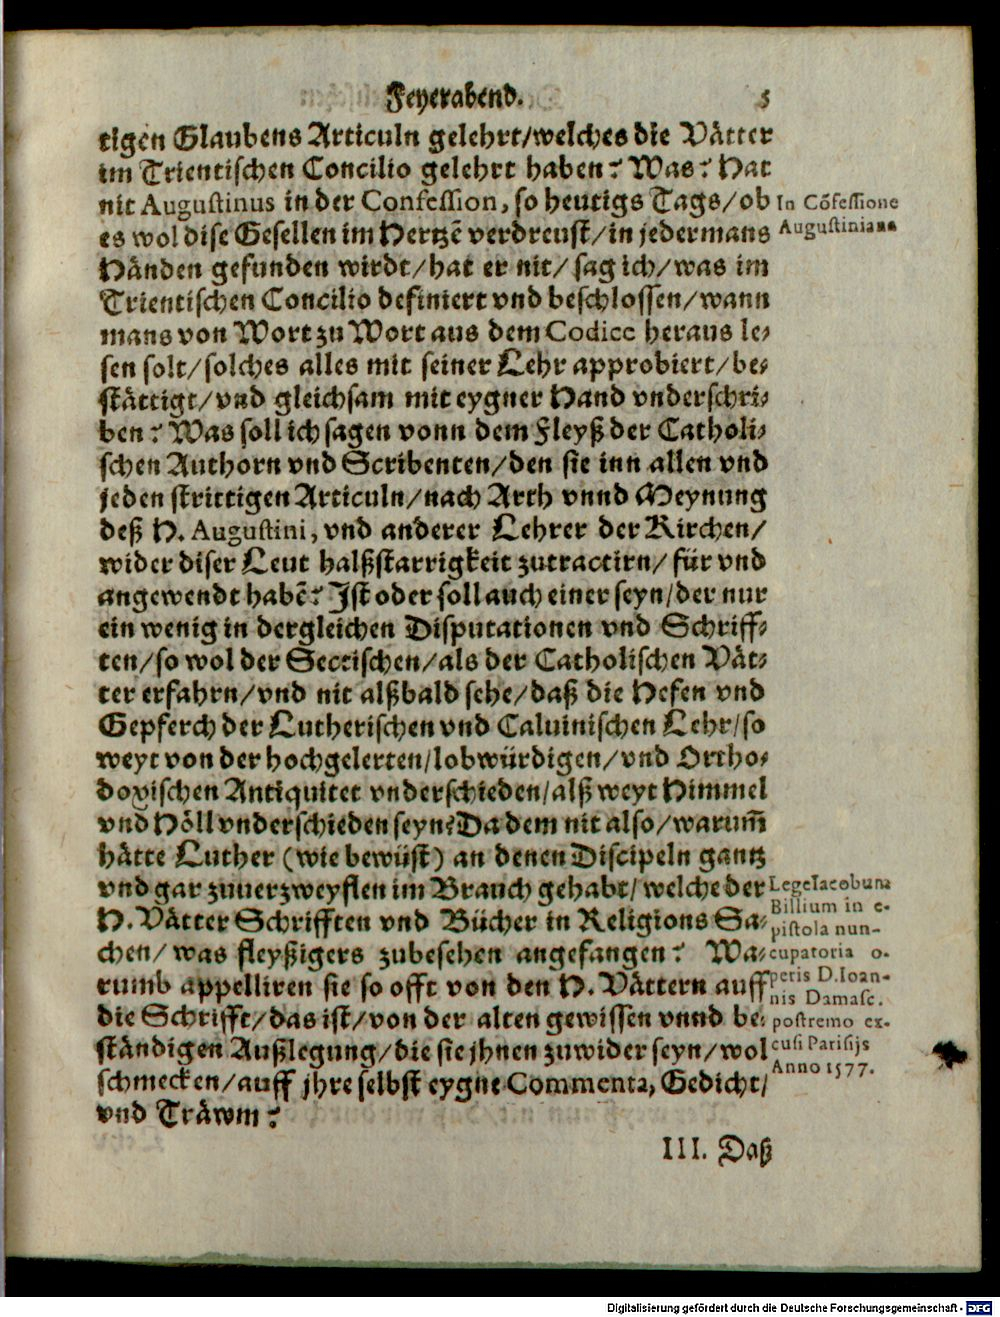 Feyerabend. 5
tigen Glaubens Articuln gelehrt/welches die Vätter
im Trientischen Concilio gelehrt haben? Was? Hat
nit Augustinus in der Confession, so heutigs Tags/ob
es wol dise Gesellen im Hertzē verdreust/in jedermans
Händen gefunden wirdt/hat er nit/sag ich/was im
Trientischen Concilio definiert vnd beschlossen/wann
mans von Wort zu Wort aus dem Codice heraus le-
sen solt/solches alles mit seiner Lehr approbiert/be-
stättigt/vnd gleichsam mit eygner Hand vnderschri-
ben? Was soll ich sagen vonn dem Fleyß der Catholi-
schen Authorn vnd Scribenten/den sie inn allen vnd
jeden strittigen Articuln/nach Arth vnnd Meynung
deß H. Augustini, vnd anderer Lehrer der Kirchen/
wider diser Leut halßstarrigkeit zutractirn/für vnd
angewendt habē? Ist oder soll auch einer seyn/der nur
ein wenig in dergleichen Disputationen vnd Schriff-
ten/so wol der Sectischen/als der Catholischen Vät-
ter erfahrn/vnd nit alßbald sehe/daß die Hefen vnd
Gepferch der Lutherischen vnd Caluinischen Lehr/so
weyt von der hochgelerten/lobwürdigen/vnd Ortho-
doxischen Antiquitet vnderschieden/alß weyt Himmel
vnd Höll vnderschieden seyn? Da dem nit also/warum̄
hätte Luther (wie bewüst) an denen Discipeln gantz
vnd gar zuuerzweyflen im Brauch gehabt/welche der
H. Vätter Schrifften vnd Bücher in Religions Sa-
chen/was fleyßigers zubesehen angefangen? Wa-
rumb appelliren sie so offt von den H. Vättern auff
die Schrifft/das ist/von der alten gewissen vnnd be-
ständigen Außlegung/die sie jhnen zuwider seyn/wol
schmecken/auff jhre selbst eygne Commenta, Gedicht/
vnd Träwm?
III. Daß
In Cōfessione
Augustiniana
Lege Iacobum
Billium in e-
pistola nun-
cupatoria o-
peris D. Ioan-
nis Damasc.
postremo ex-
cusi Parisijs
Anno 1577.
Digitalisierung gefördert durch die Deutsche Forschungsgemeinschaft - DFG